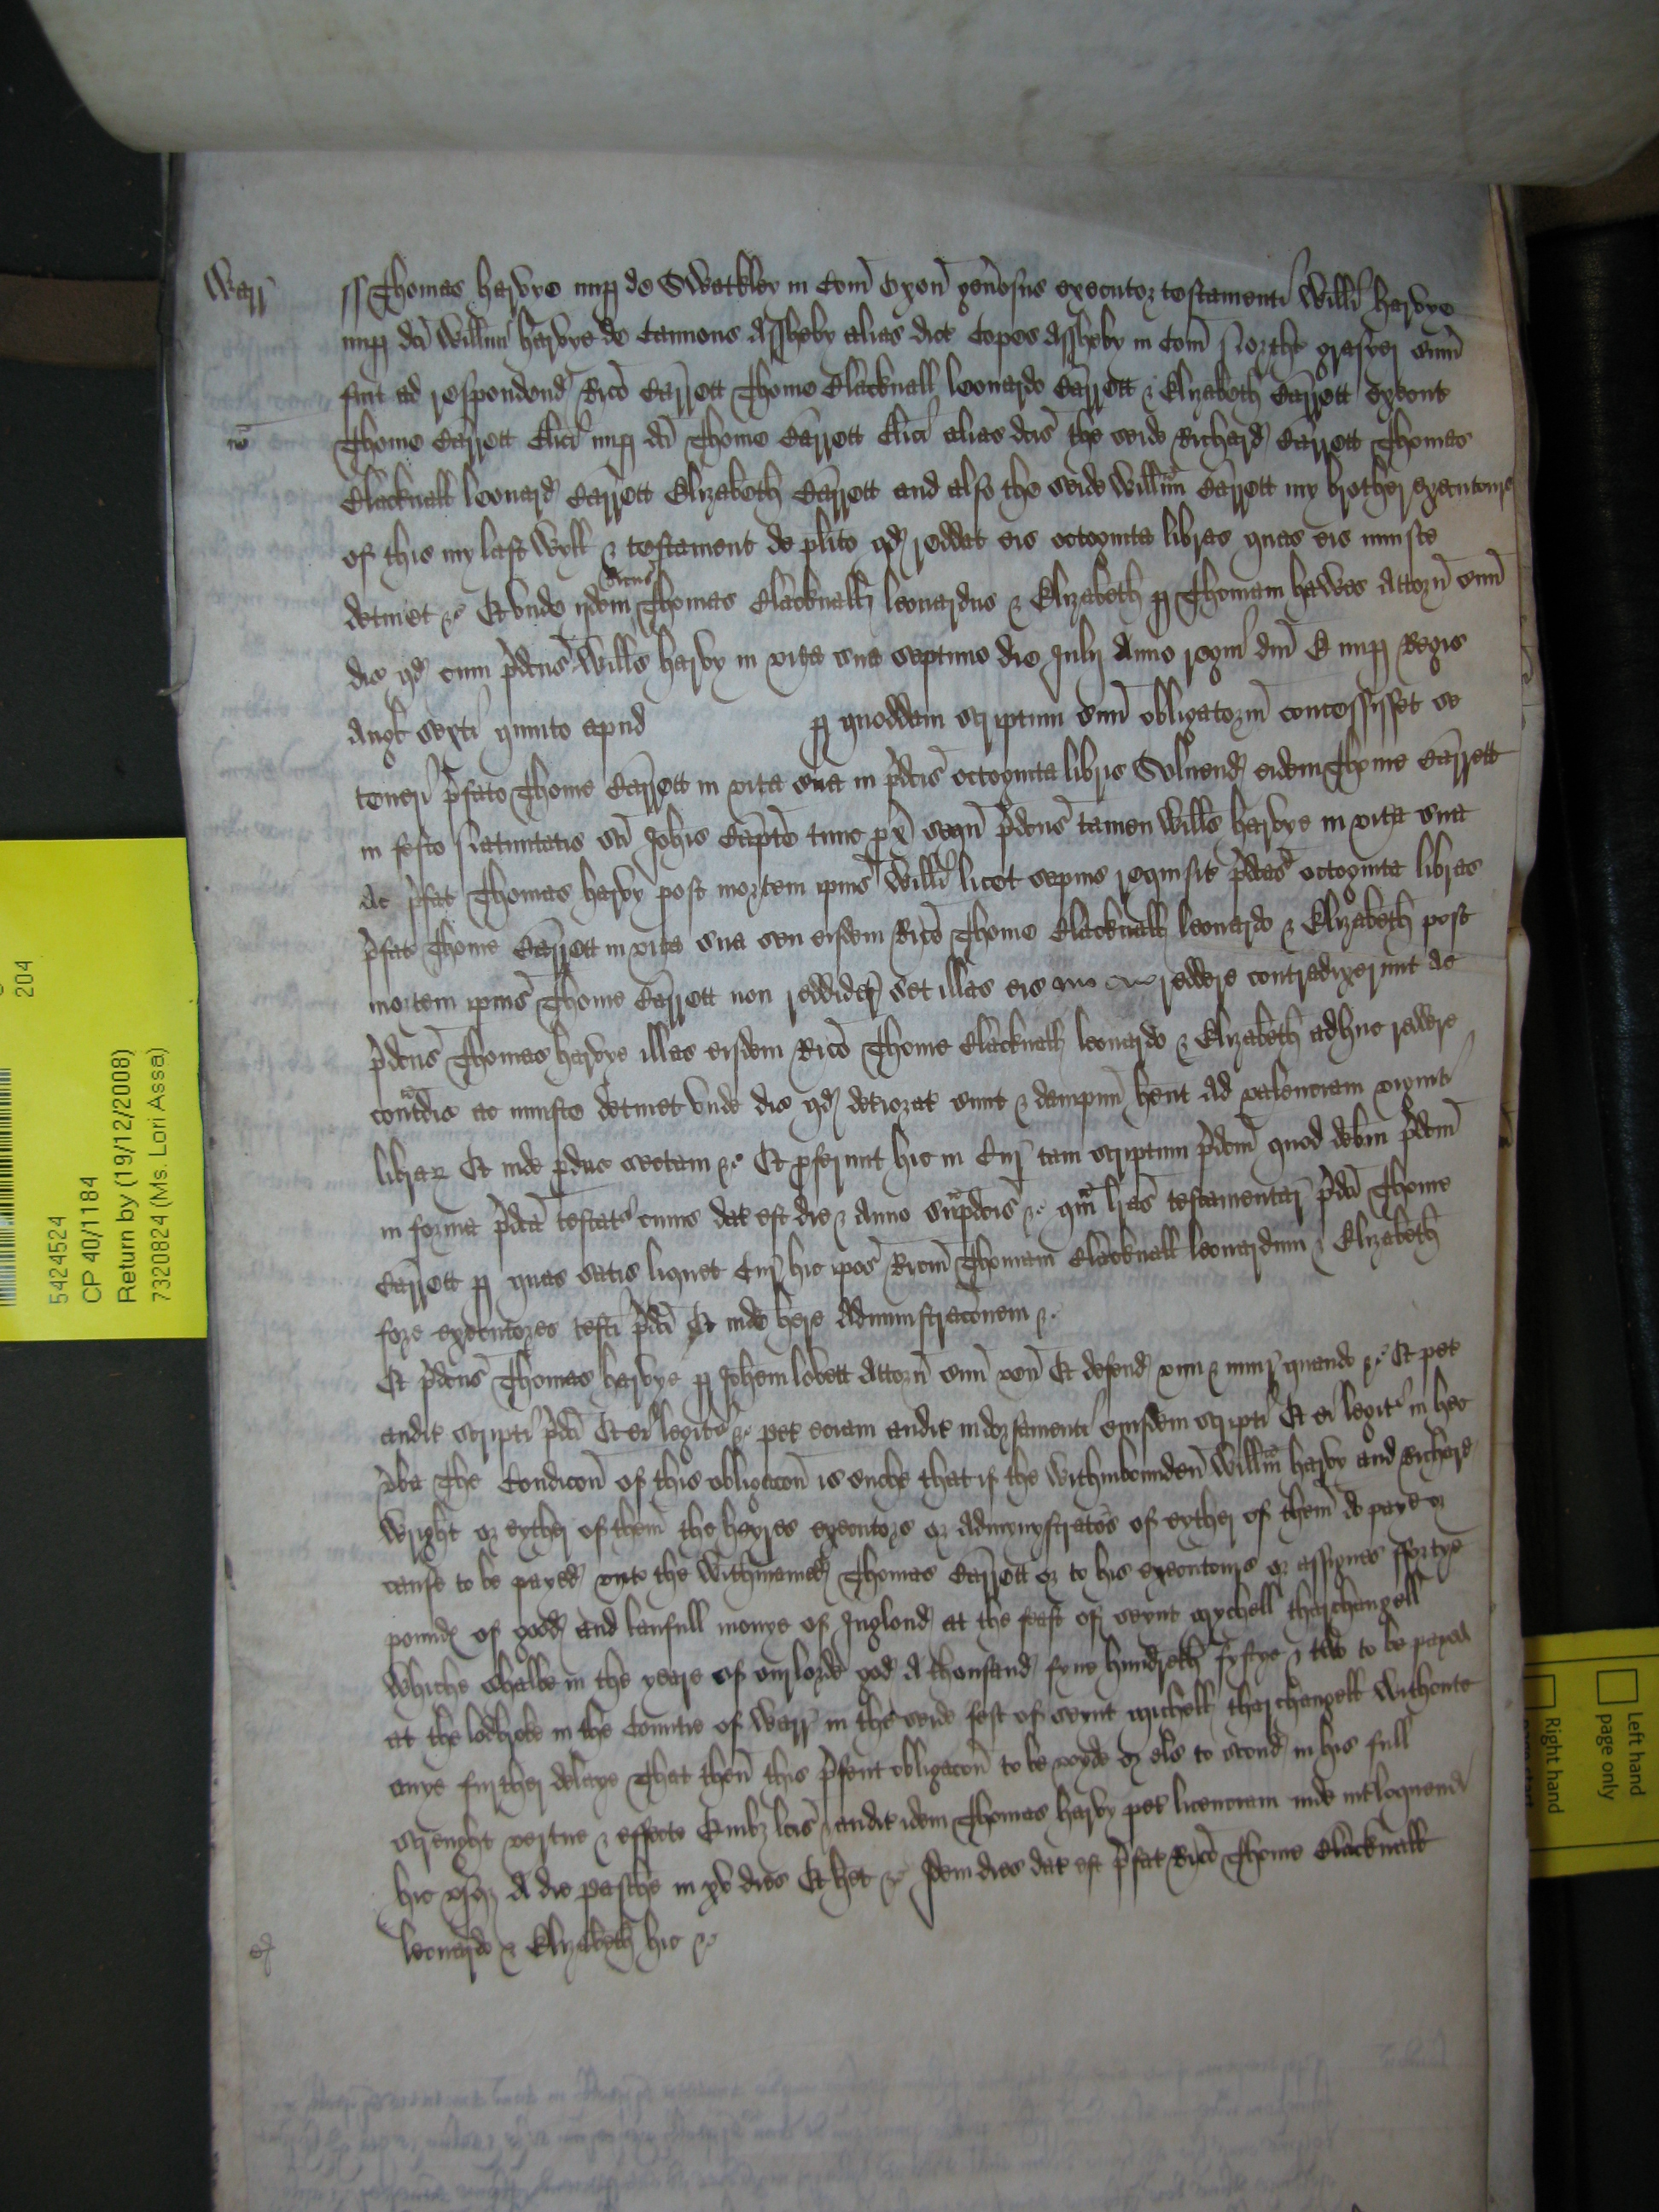 Warr
ss Thomas harvye nup de Swatkley in Com Oxon gen͂osus executor testamenti Willi harvye
nup dci Willmi harvye de Cannons Assheby alias dict Copes Assheby in Com North grasyer sum
fuit ad respondend Rico Barrott Thome Blacknall leonardo Barrott & Elizabeth Barrott execut
Thome Barrott Clici nup dci Thome Barrott Clici alias dcis the seide Richard Barrott Thomas
Blacknall leonard Barrott Elizabeth Barrott and also the seide Willm Barrott my brother executours
of this my last Wyll & testament de plito qd reddat eis octoginta libras quas eis iniuste
detinet &c Et unde ijdem Ricus Thomas Blacknall leonardus & Elizabeth p Thomam hawes Attorn suu
dic qd cum pdcus Wills harvy in vita sua septimo die Julij Anno regni dni E nup Regis
Angl sexti quinto apud p quoddam scriptum suu obligatoriu concessisset se
teneri pfato Thome Barrott in vita sua in pdcis octoginta libris Solvend eidem Thome Barrott
in festo Nativitatis sci Johis Bapte tunc px sequ pdcus tamen Wills harvye in vita sua
Ac pfat Thomas harvy post mortem ipius Willi licet sepius requisit pdcas octoginta libras
pfat Thome Barrott in vita sua seu eisdem Rico Thome Blacknall leonardo & Elizabeth post
mortem ipius Thome Barrott non reddider set illas eis reddere contradixerunt Ac
pdcus Thomas harvye illas eisdem Rico Thome Blacknall leonardo & Elizabeth adhuc reddere
contdic ac iniuste detinet unde dic qd deteriorat sunt & dampnu hent Ad valenciam viginti
librar Et inde pduc sectam &c Et pferunt hic in Cur tam scriptum pdcm quod debm pdcm
in forma pdca testatr cuius dat est die & Anno supdcis &c qm lras testamentar pdci Thome
Barrott p quas satis liquet Cur hic ipos Ricm Thomam Blacknall leonardum & Elizabeth
fore executores testi pdci Et inde here Administracoem &c
Et pdcus Thomas harvye p Johem lovett Attorn suu ven Et defend vim & iniur quando &c Et pet
audit scripti pdci Et ei legitr &c pet eciam audit indorsamenti eiusdem scripti Et ei legitr in hec
vba The Condicon of this obligacon is suche that if the Withinbounden Willm harvy and Richard
Wright or eyther of them the heyres executors or Admynystrators of eyther of them do paye or
cause to be payed unto the Withinnamed Thomas Barrott or to his executours or assignes fortye
pounds of good and laufull monye of Inglond at the feast of seynt mychell tharchangell
Whiche shalbe in the yeare of our lorde god A thousand fyve hundreth fyftye & two to be payed
at the lodbroke in the Countie of Warr in the seide fest of seynt michell tharchangell Withoute
anye further delaye That then this psent obligacon to be voyde or els to stond in his full
strenght vertue & effecte Quibz lcis & audit idem Thomas harvy pet licenciam inde intloquend
hic usqz A die pasche in xv dies Et het &c Idem dies dat est pfat Rico Thome Blacknall
leonardo & Elizabeth hic &c
204
5424524
CP 40/1184
Return by (19/12/2008)
7320824 (Ms. Lori Assa)
Left hand
page only
Right hand